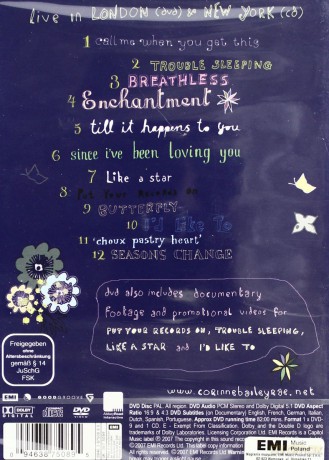 live in LONDON (dvd) & NEW YORK (cd)
1 call me when you get this
2 TROUBLE SLEEPING
3 BREATHLESS
4 Enchantment
5 till it happens to you
6 since i've been loving you
7 Like a star
8 Put Your Records On
9 BUTTERFLY
10 I'd Like To
11 'choux pastry heart'
12 SEASONS CHANGE
dvd also includes documentary
footage and promotional videos for
PUT YOUR RECORDS ON, TROUBLE SLEEPING,
LIKE A STAR and I'D LIKE TO
Freigegeben
ohne
Altersbeschränkung
gemäß § 14
JuSchG
FSK
www.corinnebaileyrae.net
EMI
GOOD GROOVE
DOLBY
DIGITAL
DVD
VIDEO
DVD Disc PAL. All region. DVD Audio PCM Stereo and Dolby Digital 5.1 DVD Aspect
Ratio 16:9 & 4:3 DVD Subtitles (on Documentary) English, French, German, Italian,
Dutch, Spanish, Portuguese. Approx DVD running time 62:00 mins. Format 1 x DVD-
9 and 1 CD. E - Exempt From Classification. Dolby and the Double D logo are
trademarks of Dolby Laboratories.
EMI Music
Poland